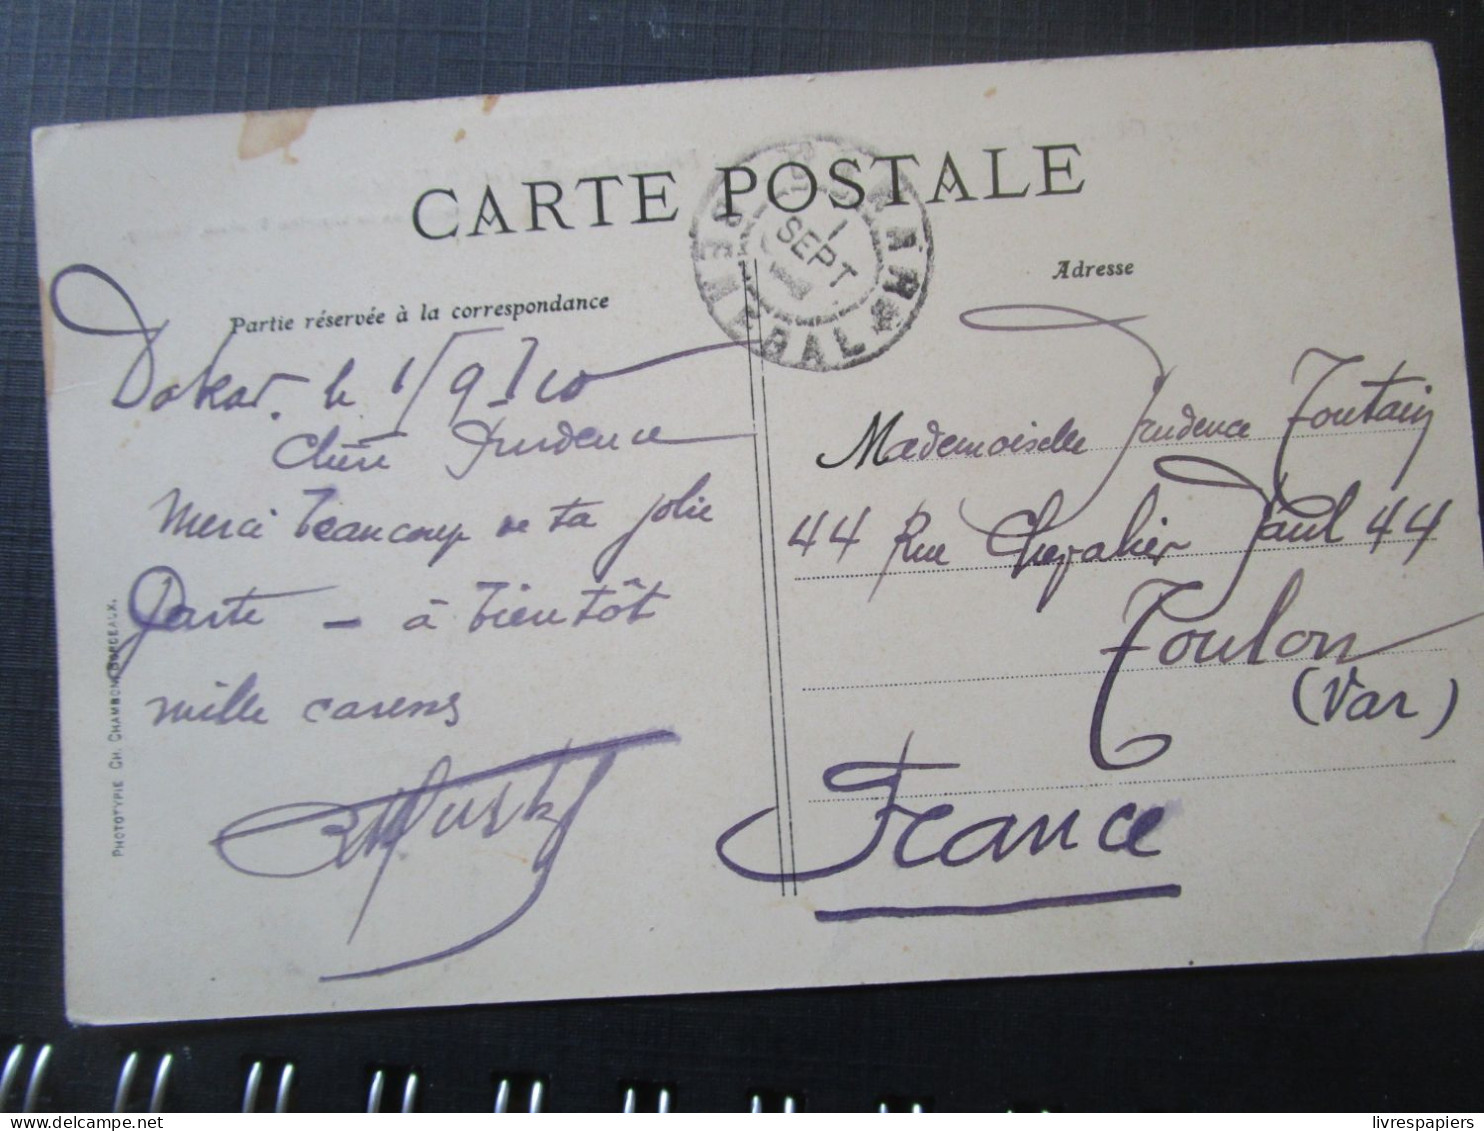 CARTE POSTALE
Partie réservée à la correspondance
Adresse
DAKAR
SENEGAL
1
SEPT
Dakar. le 1/9/10
Chère Prudence
Merci beaucoup de ta jolie
Carte - à bientôt
mille caresses
Mademoiselle Prudence Toutain
44 Rue Chevalier Paul 44
Toulon
(Var)
France
PHOTOTYPIE CH. CHAMBON, BORDEAUX.
livrespapiers